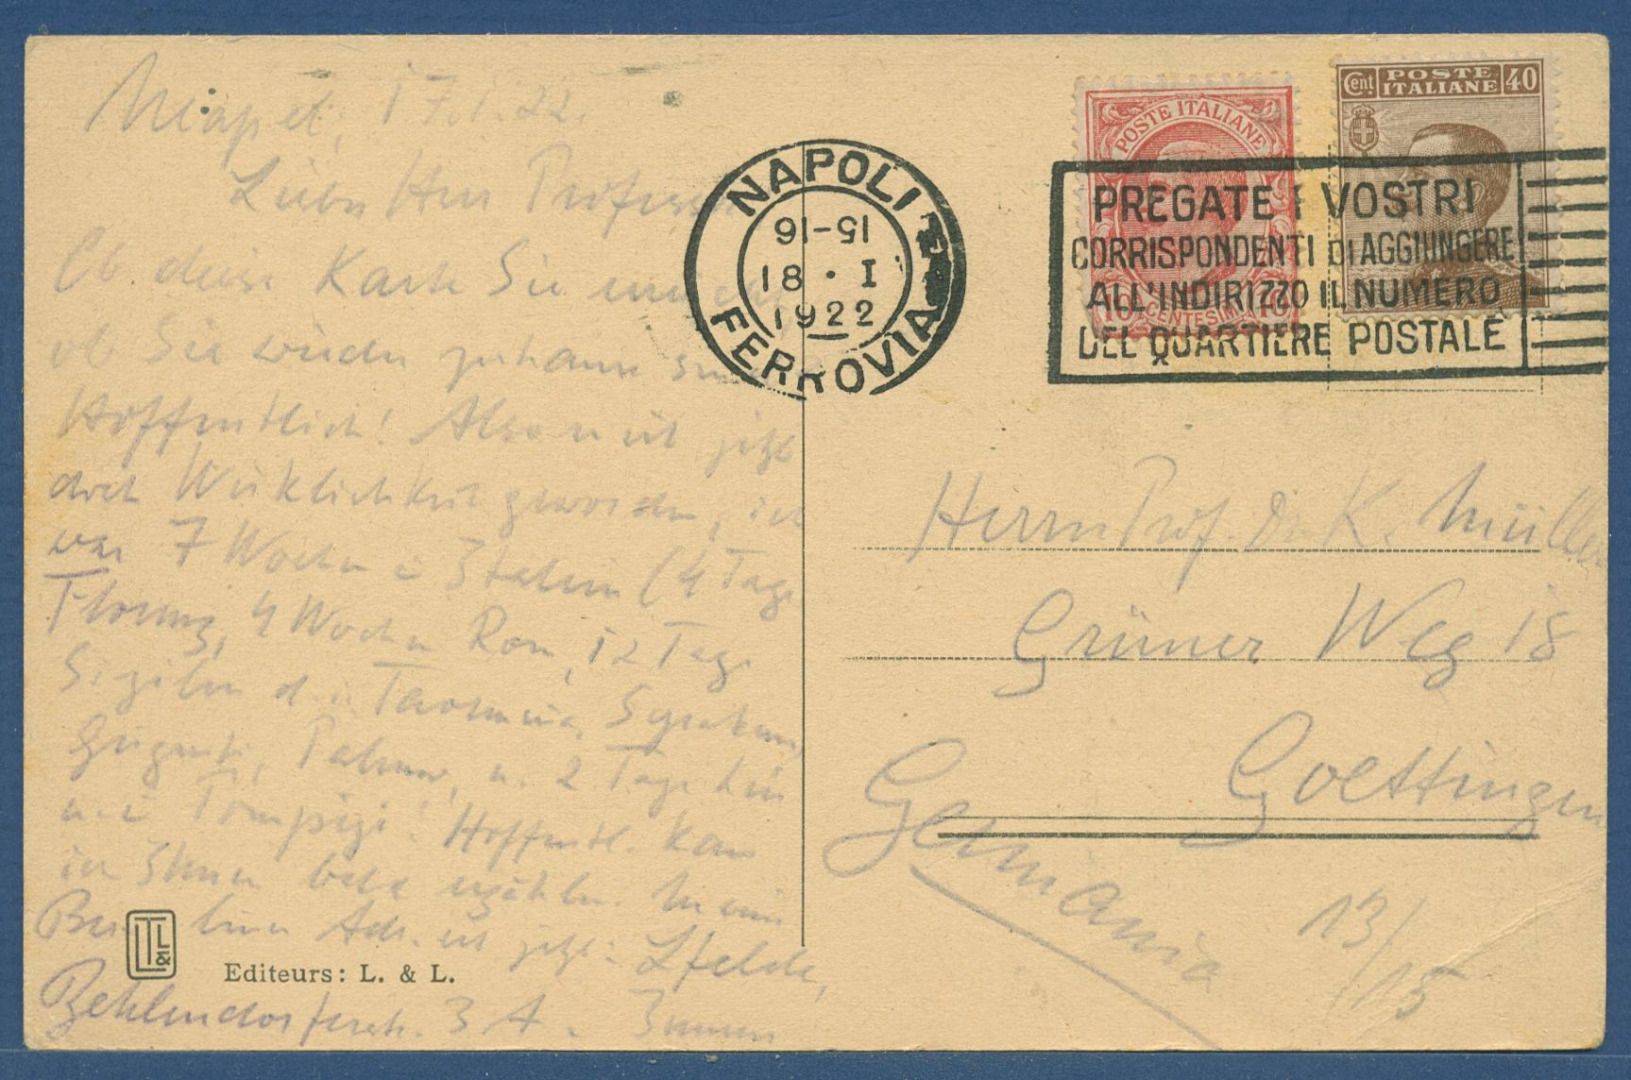 Neapel, 17.1.22.
Lieber Herr Professor
Ob diese Karte Sie erreicht
ob Sie wieder zuhause sind
Hoffentlich! Also es ist jetzt
doch Wirklichkeit geworden, ich
war 7 Wochen i Italien (4 Tage
Florenz, 4 Wochen Rom, 12 Tage
Sizilien d. i. Taormina, Syrakus,
Girgenti, Palermo, u. 2 Tage hier
u. i Pompeji. Hoffentl. kann
ich Ihnen bald erzählen. Mein
Berliner Adr. ist jetzt: Lfelde,
Zehlendorferstr. 3 A. Ihnen
LL&
Editeurs: L. & L.
NAPOLI
15-16
18 · I
1922
FERROVIA
POSTE ITALIANE
10 CENTESIMI 10
Cent POSTE ITALIANE 40
PREGATE I VOSTRI
CORRISPONDENTI DI AGGIUNGERE
ALL'INDIRIZZO IL NUMERO
DEL QUARTIERE POSTALE
Herrn Prof. Dr. K. Müller
Grüner Weg 18
Goettingen
Germania
13/
15